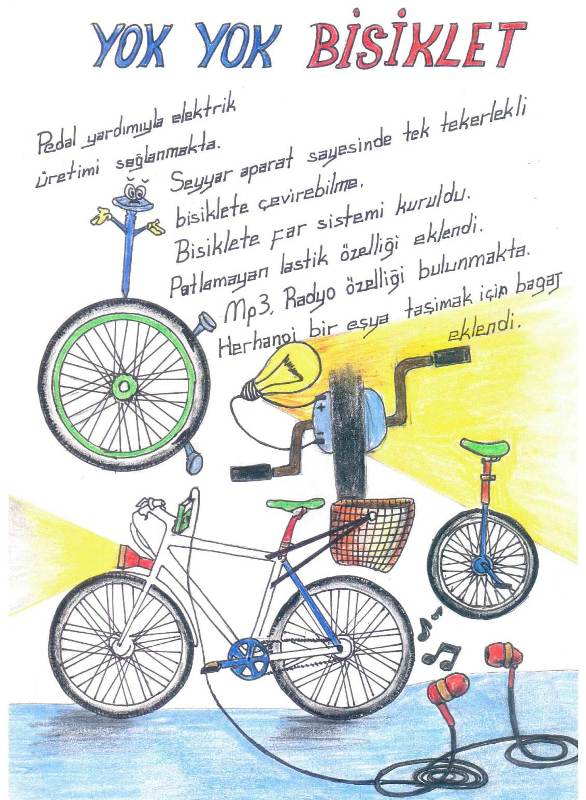 YOK YOK BİSİKLET
Pedal yardımıyla elektrik
üretimi sağlanmakta.
Seyyar aparat sayesinde tek tekerlekli
bisiklete çevirebilme.
Bisiklete Far sistemi kuruldu.
Patlamayan lastik özelliği eklendi.
Mp3, Radyo özelliği bulunmakta.
Herhangi bir eşya taşimak için bagaj
eklendi.